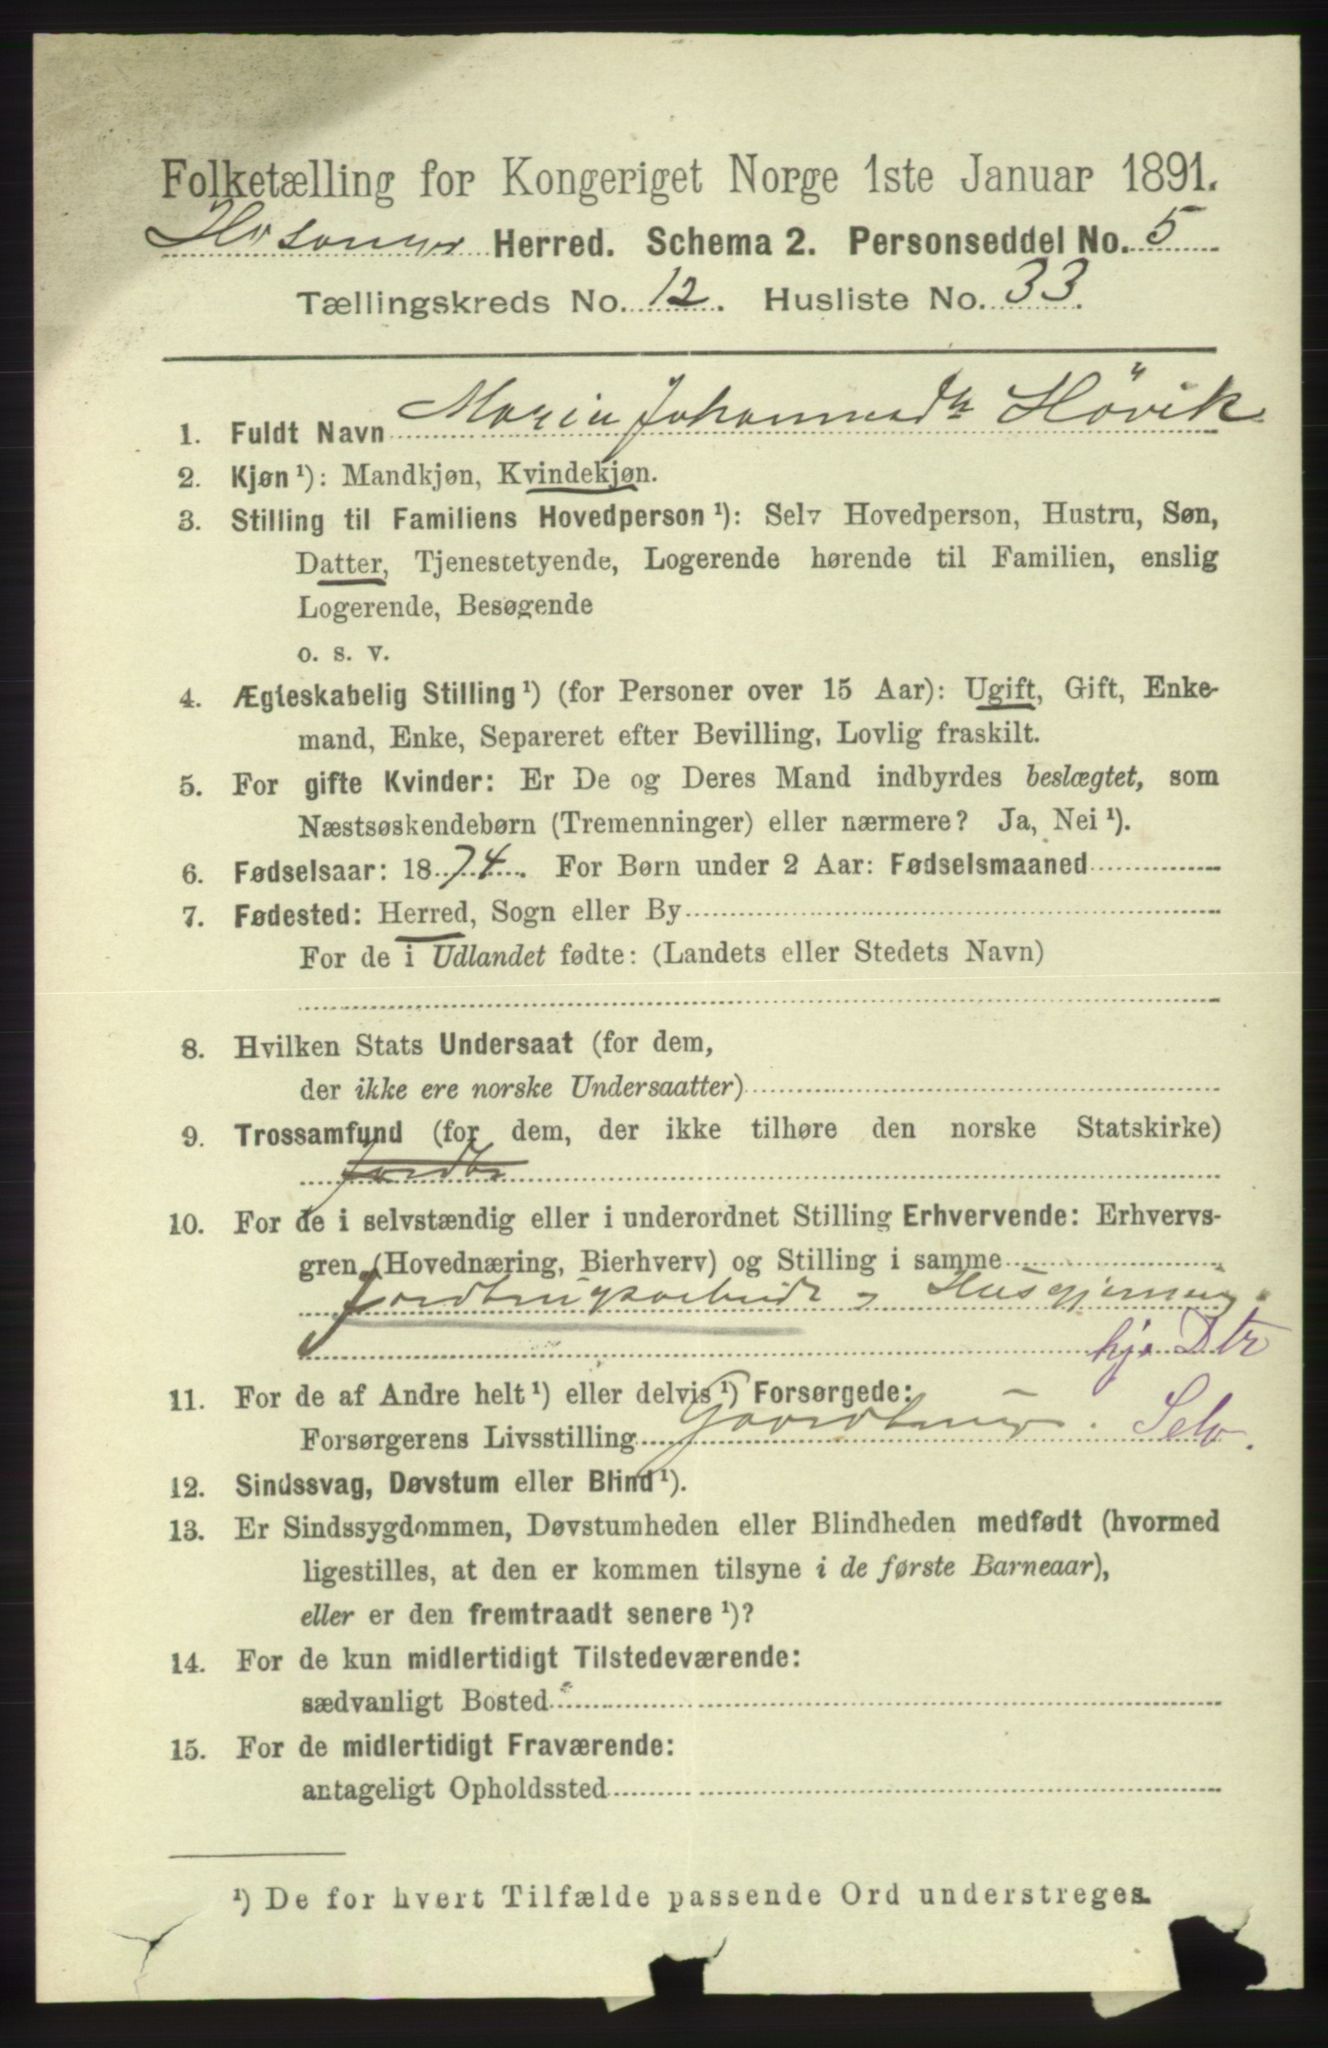 Folketælling for Kongeriget Norge 1ste Januar 1891.
Hosanger Herred. Schema 2. Personseddel No. 5
Tællingskreds No. 12. Husliste No. 33.
1. Fuldt Navn Maria Johannesdtr Hövik
2. Kjøn ¹): Mandkjøn, Kvindekjøn.
3. Stilling til Familiens Hovedperson ¹): Selv Hovedperson, Hustru, Søn,
Datter, Tjenestetyende, Logerende hørende til Familien, enslig
Logerende, Besøgende
o. s. v.
4. Ægteskabelig Stilling ¹) (for Personer over 15 Aar): Ugift, Gift, Enke-
mand, Enke, Separeret efter Bevilling, Lovlig fraskilt.
5. For gifte Kvinder: Er De og Deres Mand indbyrdes beslægtet, som
Næstsøskendebørn (Tremenninger) eller nærmere? Ja, Nei ¹).
6. Fødselsaar: 1874. For Børn under 2 Aar: Fødselsmaaned
7. Fødested: Herred, Sogn eller By
For de i Udlandet fødte: (Landets eller Stedets Navn)
8. Hvilken Stats Undersaat (for dem,
der ikke ere norske Undersaatter)
9. Trossamfund (for dem, der ikke tilhøre den norske Statskirke)
Jordbr
10. For de i selvstændig eller i underordnet Stilling Erhvervende: Erhvervs-
gren (Hovednæring, Bierhverv) og Stilling i samme
Jordbrugsarbeide og Husgjerning.
hj. Dtr
11. For de af Andre helt ¹) eller delvis ¹) Forsørgede:
Forsørgerens Livsstilling Gaardbruger. Selv.
12. Sindssvag, Døvstum eller Blind ¹).
13. Er Sindssygdommen, Døvstumheden eller Blindheden medfødt (hvormed
ligestilles, at den er kommen tilsyne i de første Barneaar),
eller er den fremtraadt senere ¹)?
14. For de kun midlertidigt Tilstedeværende:
sædvanligt Bosted
15. For de midlertidigt Fraværende:
antageligt Opholdssted
¹) De for hvert Tilfælde passende Ord understreges.